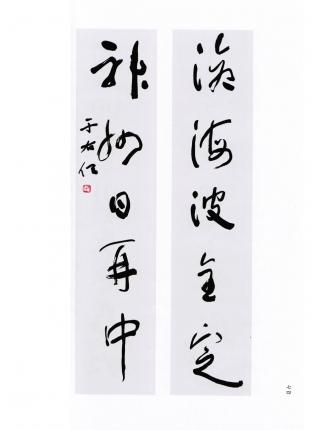 滄海波全定
神州日再中
于右任
七四